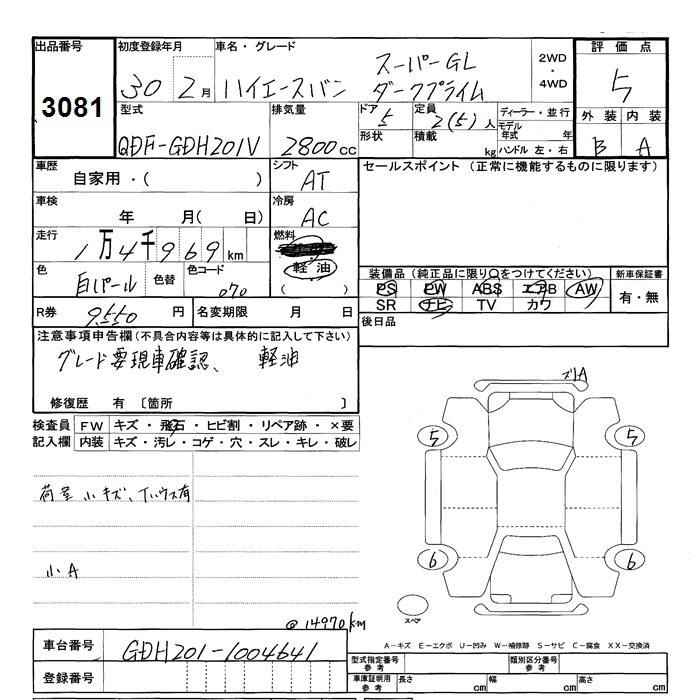 出品番号 初度登録年月 車名・グレード 評価点
3081 30 2月 ハイエースバン スーパーGL ダークプライム 2WD・4WD 5
型式 排気量 ドア 5 定員 2(5)人 ディーラー・並行 外装 内装
QDF-GDH201V 2800cc 形状 積載 kg モデル年式 年 ハンドル 左・右 B A
車歴 シフト セールスポイント (正常に機能するものに限ります)
自家用・( ) AT
車検 冷房
年 月( 日) AC
走行 燃料
1万4千969km 軽油
色 色替 色コード ( ) 装備品(純正品に限り○をつけてください) 新車保証書
白パール 070 PS PW ABS エアB AW 有・無
SR ナビ TV カワ
R券 9.550円 名変期限 月 日 後日品
注意事項申告欄(不具合内容等は具体的に記入して下さい)
グレード要現車確認、 軽油
修復歴 有〔箇所 〕
検査員 FW キズ・飛石・ヒビ割・リペア跡・×要
記入欄 内装 キズ・汚レ・コゲ・穴・スレ・キレ・破レ
荷室小キズ、
小A
@14970km
車台番号 GDH201-1004641
登録番号
ズリA
5 5
6 6
スペア
A−キズ E−エクボ U−凹み W−補修跡 S−サビ C−腐食 XX−交換済
型式指定番号 参考 類別区分番号 参考
車庫証明用 参考 長さ cm 幅 cm 高さ cm